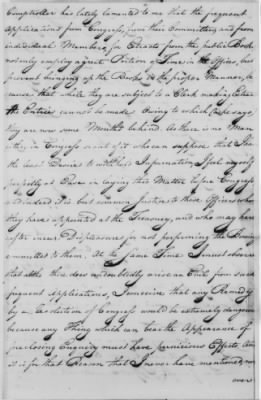 Comptroller has lately lamented to me that the frequent
applications from Congress, from their Committees, and from
individual Members, for Extracts from the public Books
not only employ a great Portion of Time in the offices, but
prevent bringing up the Books in the proper Manner, be
cause that while they are subject to a Clerk making Extracts
the Entries cannot be made. Owing to which Cause says
they are now some Months behind. As there is no Man
either in Congress or out of it who can suppose that I have
the least Desire to withhold Information, I feel myself
perfectly at Ease in laying this Matter before Congress
Indeed it is but common Justice to those Officers who
they have appointed at the Treasury, and who may here
after incur Displeasure for not performing the Business
committed to them. At the same Time I must observe
that altho there does undoubtedly arise an Evil from such
frequent Applications, I conceive that any Remedy
by a Resolution of Congress would be extremely dangerous
because any Thing which can bear the Appearance of
foreclosing Enquiry must have pernicious Effects. And
it is for that Reason that I now have mentioned, nor
ever